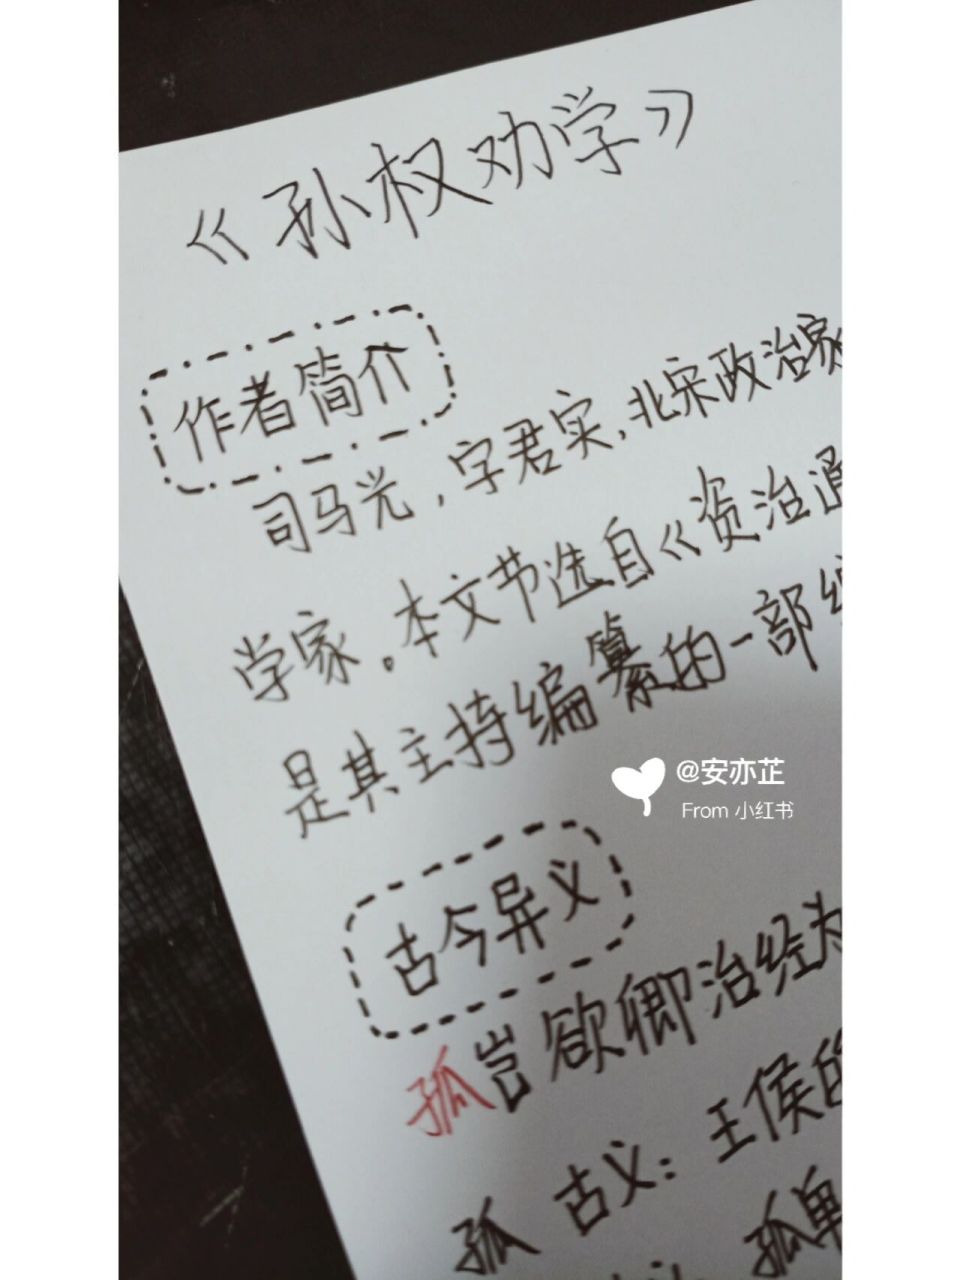 《孙权劝学》
作者简介
司马光，字君实，北宋政治家
学家。本文节选自《资治通
是其主持编纂的一部编
@安亦芷
From 小红书
古今异义
孤岂欲卿治经为
孤 古义：王侯的
孤单